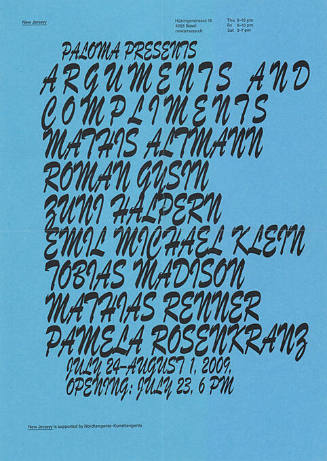 New Jerseyy
Hüningerstrasse 18
4056 Basel
newjerseyy.ch
Thu 8–10 pm
Fri 8–10 pm
Sat 3–7 pm
PALOMA PRESENTS
ARGUMENTS AND
COMPLIMENTS
MATHIS ALTMANN
ROMAN GYSIN
ZUNI HALPERN
EMIL MICHAEL KLEIN
TOBIAS MADISON
MATHIAS RENNER
PAMELA ROSENKRANZ
JULY 24–AUGUST 1, 2009,
OPENING: JULY 23, 6 PM
New Jerseyy is supported by Nordtangente-Kunsttangente